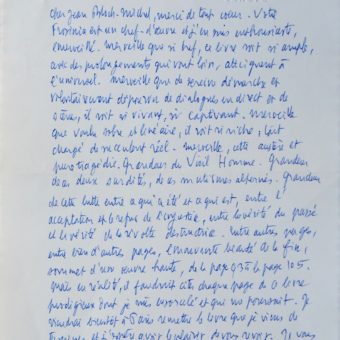 cher Jean Bloch-Michel, merci de tout cœur. Votre
Frosinia est un chef-d'œuvre et j'en suis enthousiasmé,
émerveillé. Merveille que si bref, ce livre soit si ample,
avec des prolongements qui vont loin, atteignent à
l'universel. Merveille que de sereine démarche et
volontairement dépourvu de dialogues en direct et de
scènes, il soit si vivant, si captivant. Merveille
que voulu sobre et linéaire, il soit si riche, tant
chargé de succulent réel. Merveille, cette austère et
pure tragédie. Grandeur du Vieil Homme. Grandeur
de ces deux surdités, de ces mutismes alternés. Grandeur
de cette lutte entre ce qui a été et ce qui est, entre l'
acceptation et le refus de l'injustice, entre la vérité du passé
et la vérité de la révolte destructrice. Entre autres pages,
entre bien d'autres pages, l'émouvante beauté de la fin,
sommet d'une œuvre haute, de la page 93 à la page 105.
Mais en réalité, il faudrait citer chaque page de ce livre
prodigieux dont je suis ensorcelé et qui me poursuit. Je
viendrai bientôt à Paris remettre le livre que je viens de
terminer et j'espère avoir le plaisir de vous revoir. Je vous